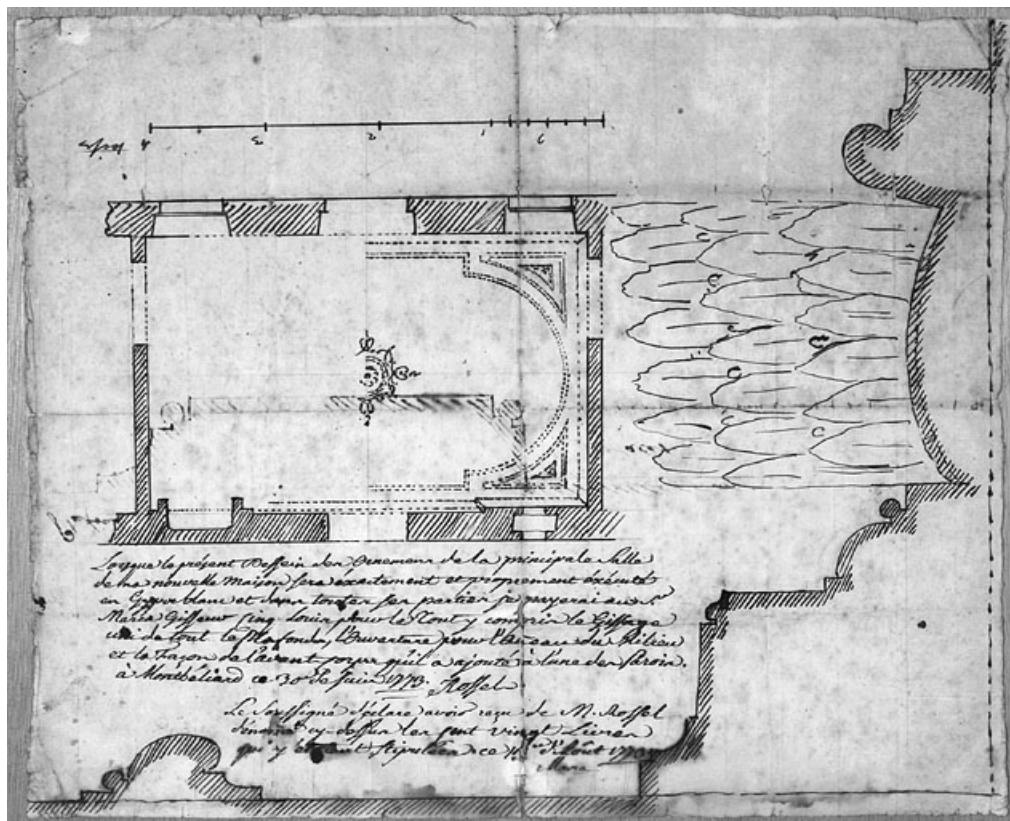 Lorsque le présent Dessein des Ornemens de la principale Salle
de ma nouvelle maison sera exactement et proprement éxécuté
en Gypse blanc et dans toutes ses parties je payerai au Sr.
Maria Gisseur cinq Louis pour le Tout y compris le Gissage
uni de tout le Plafond, l'Ouverture pour l'Anneau du Milieu
et la Façon de l'avant qu'il a ajouté à l'une des Parois.
à Montbéliard ce 30e de Juin 1773. Rossel
Le Soussigné déclare avoir reçu de M. Rossel
dénommé cy-dessus les cent vingt Livres
qui y stipulées ce Août 1773